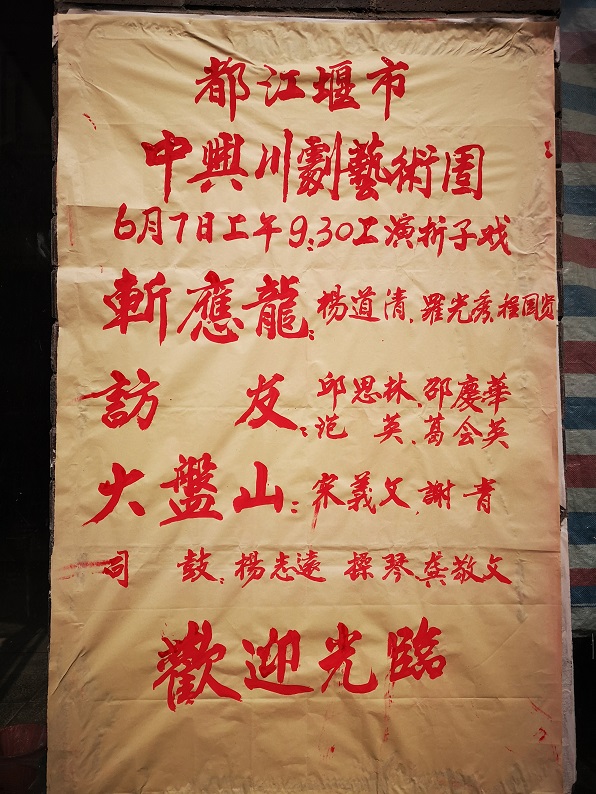 都江堰市
中興川劇藝術團
6月7日上午9:30上演折子戏
斬應龍:楊道清、羅光秀、程国贤
訪友:邱思林、邵慶華
范英、葛会英
大盤山:宋義文、謝青
司鼓:楊志遠 操琴:龚敬文
歡迎光臨